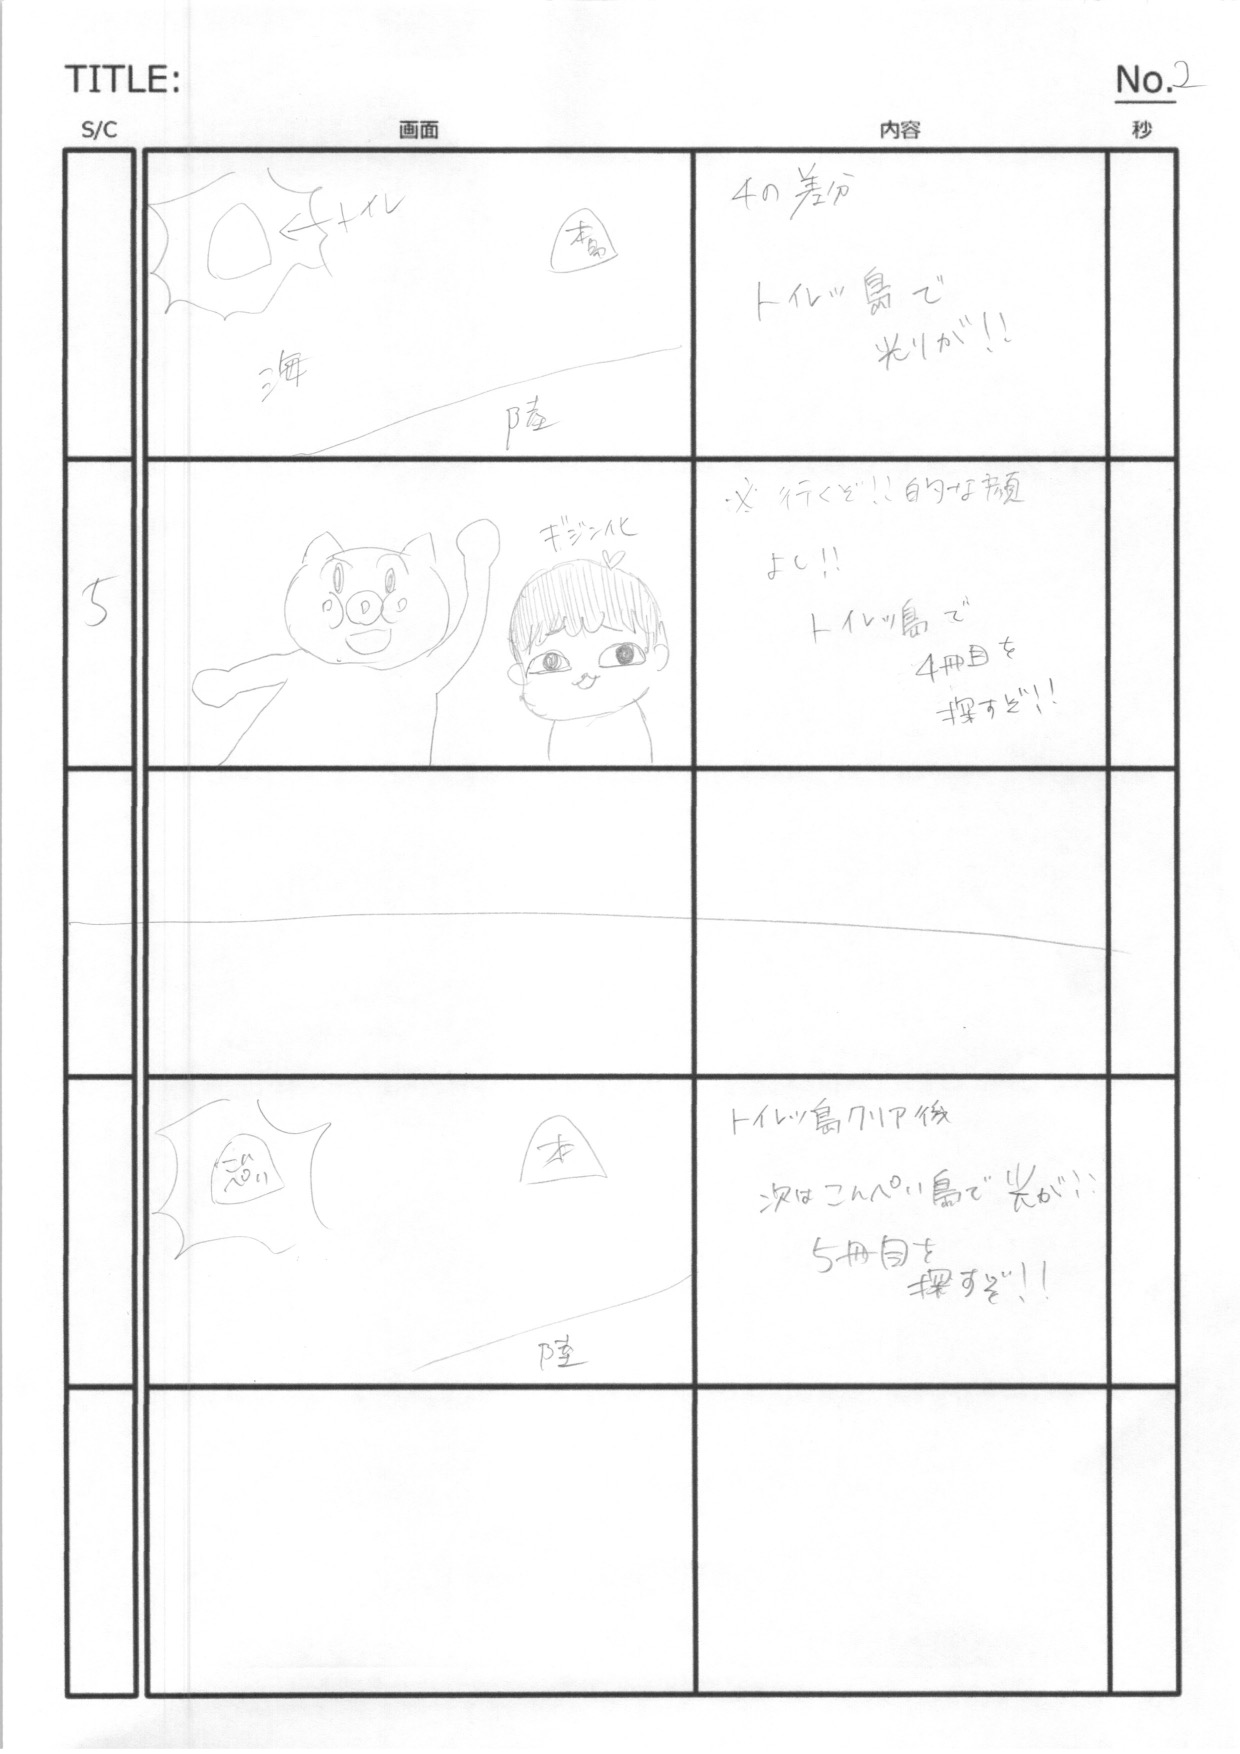 TITLE:
No.2
S/C
画面
内容
秒
←トイレ
本島
海
陸
4の差分
トイレッ島で
光りが!!
5
ギジン化
※行くぞ!!的な顔
よし!!
トイレッ島で
4冊目を
探すぞ!!
こんぺい
本
陸
トイレッ島クリア後
次はこんぺい島で光が!!
5冊目を
探すぞ!!